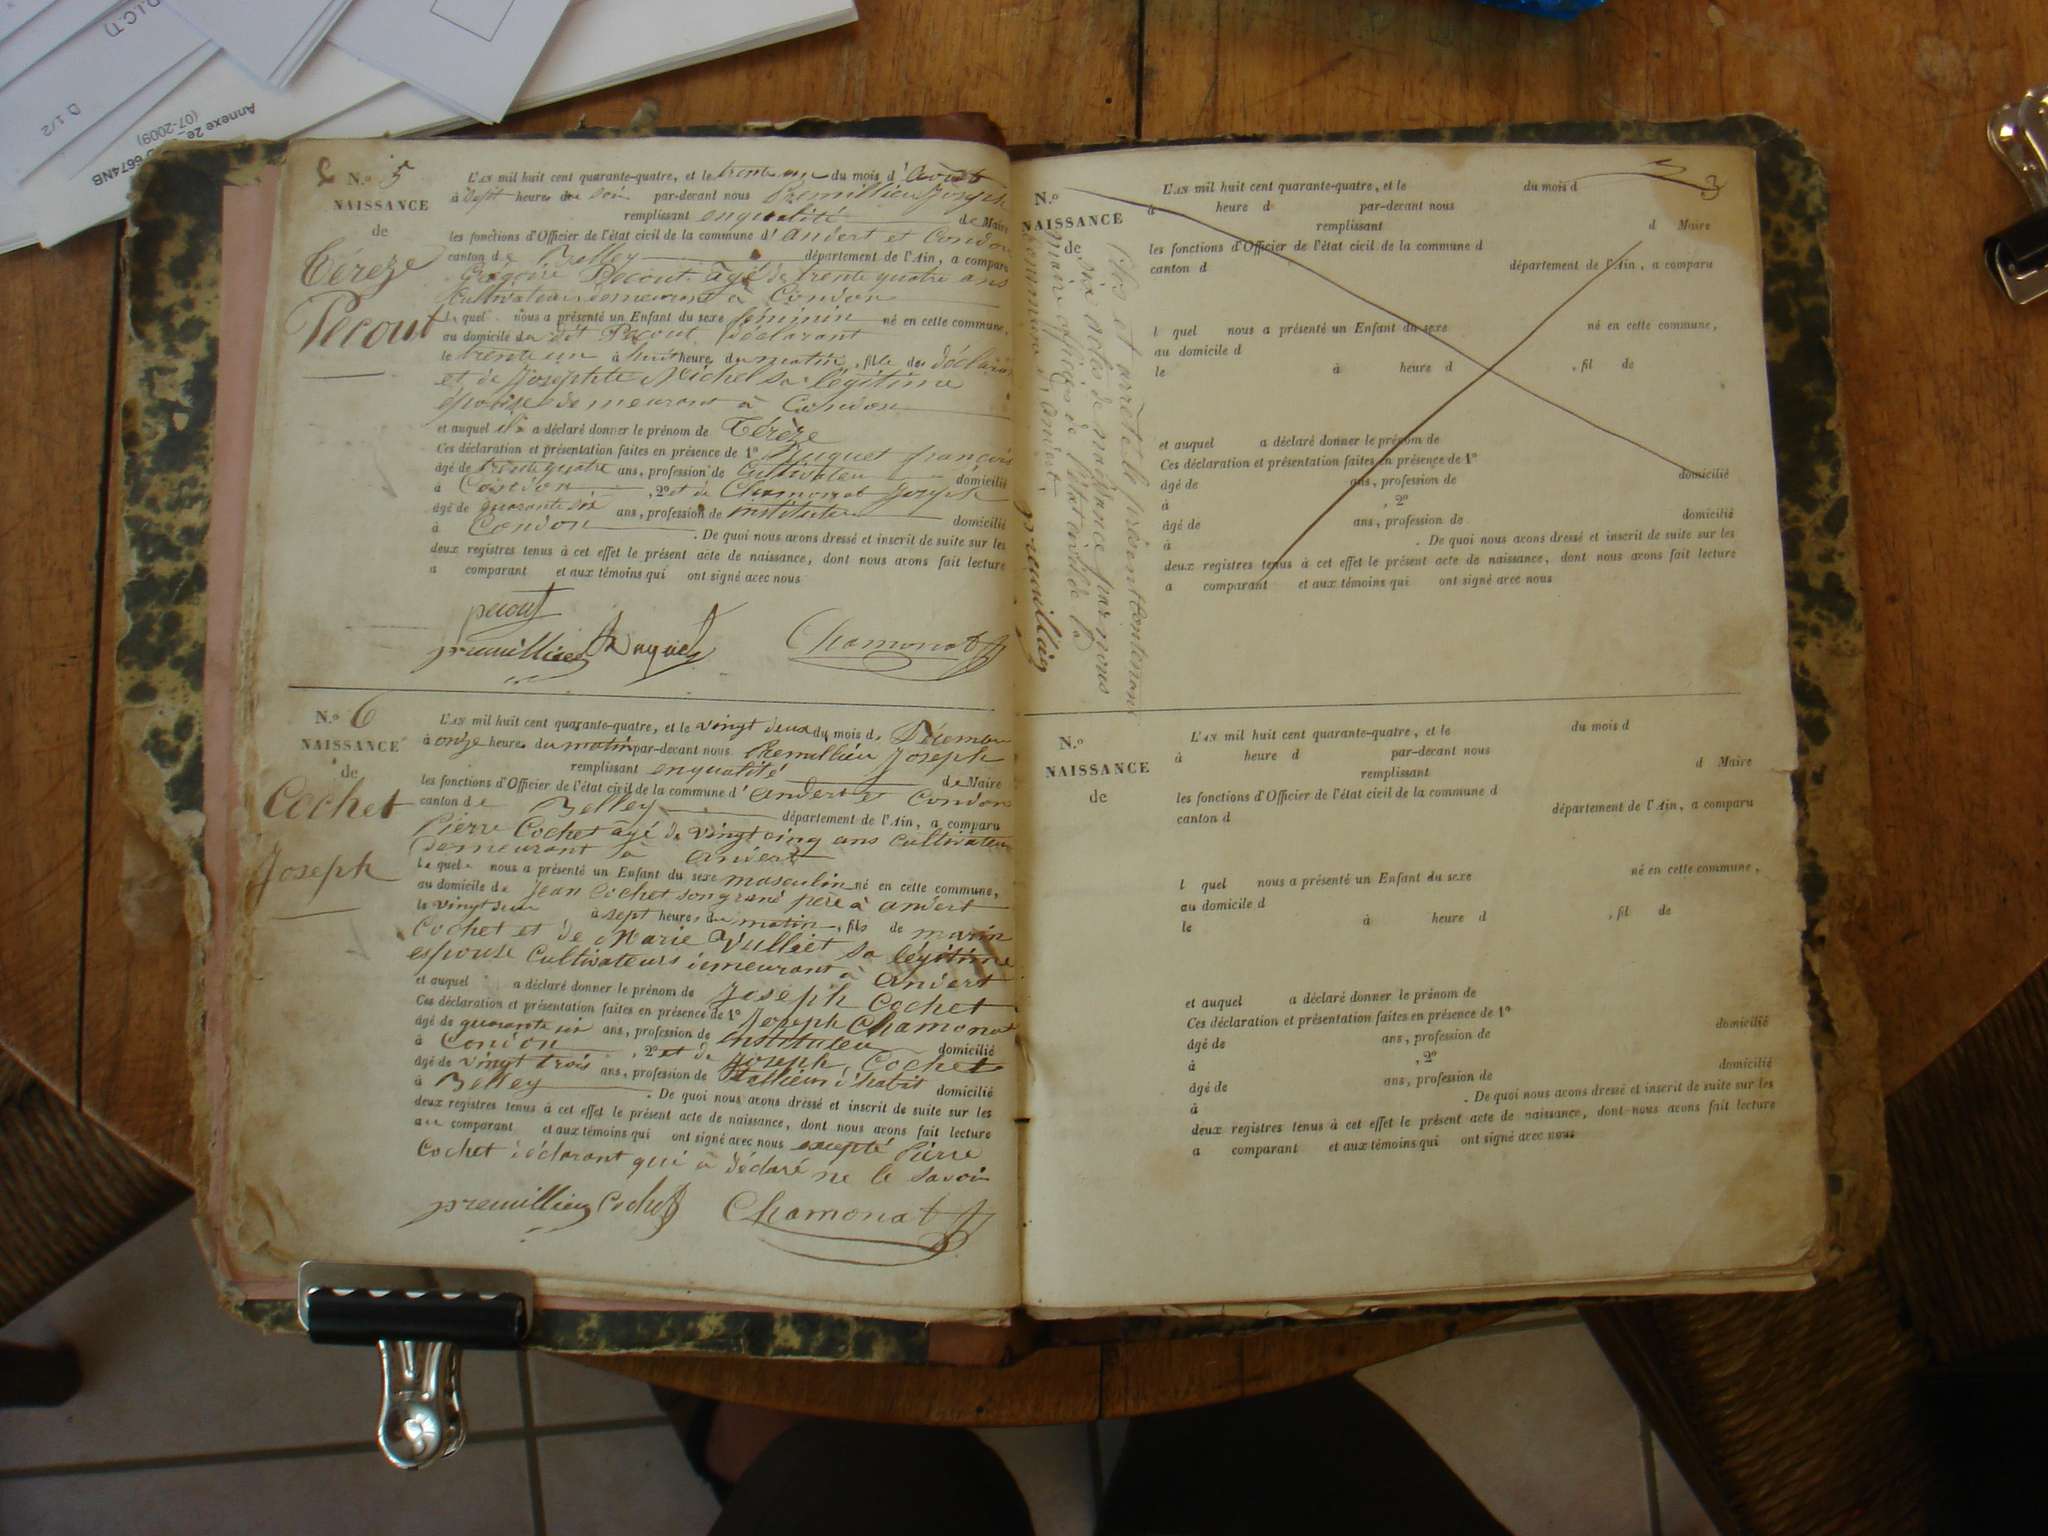 D.I.C.T)
D 1/2
Annexe 2e
(07-2009)
6674NB
N.º 5
NAISSANCE
de
Térèze
Pecout
L'AN mil huit cent quarante-quatre, et le trente un du mois d' Aoust
à sept heures du soir par-devant nous Premillieu Joseph
remplissant en qualité de Maire
les fonctions d'Officier de l'état civil de la commune d' andert et Condon
canton de Belley département de l'Ain, a comparu
Grégoire Pecout âgé de trente quatre ans
cultivateur demeurant à Condon
lequel nous a présenté un Enfant du sexe féminin né en cette commune,
au domicile du dit Pecout déclarant
le trente un à huit heures du matin, fille du déclarant
et de Josephte Michel sa légitime
épouse demeurant à Condon
et auquel il a déclaré donner le prénom de Térèze
Ces déclaration et présentation faites en présence de 1º Huguet françois
âgé de trente quatre ans, profession de cultivateur domicilié
à Condon, 2º et de Chamonat Joseph
âgé de quarante six ans, profession de instituteur domicilié
à Condon. De quoi nous avons dressé et inscrit de suite sur les
deux registres tenus à cet effet le présent acte de naissance, dont nous avons fait lecture
a comparant et aux témoins qui ont signé avec nous
pecout
premillieu Huguet Chamonat
N.º 6
NAISSANCE
de
Cochet
Joseph
L'AN mil huit cent quarante-quatre, et le vingt deux du mois de Décembre
à onze heures du matin par-devant nous Premillieu Joseph
remplissant en qualité de Maire
les fonctions d'Officier de l'état civil de la commune d' andert et Condon
canton de Belley département de l'Ain, a comparu
Pierre Cochet âgé de vingt cinq ans cultivateur
demeurant à andert
lequel nous a présenté un Enfant du sexe masculin né en cette commune,
au domicile de Jean Cochet son grand père à andert
le vingt deux à sept heures du matin, fils de marin
Cochet et de Marie Vulliet sa légitime
espouse cultivateurs demeurant à andert
et auquel a déclaré donner le prénom de Joseph Cochet
Ces déclaration et présentation faites en présence de 1º Joseph Chamonat
âgé de quarante six ans, profession de instituteur domicilié
à Condon, 2º et de Joseph Cochet
âgé de vingt trois ans, profession de tallieur d'habit domicilié
à Belley. De quoi nous avons dressé et inscrit de suite sur les
deux registres tenus à cet effet le présent acte de naissance, dont nous avons fait lecture
au comparant et aux témoins qui ont signé avec nous excepté Pierre
Cochet déclarant qui a déclaré ne le savoir
premillieu Cochet Chamonat
3
N.º
NAISSANCE
de
Clos et arrêté le présent contenant
six actes de naissance par nous
maire officier de l'état civil de la
commune d'andert
premillieu
L'AN mil huit cent quarante-quatre, et le du mois d
à heure d par-devant nous
remplissant d Maire
les fonctions d'Officier de l'état civil de la commune d
canton d département de l'Ain, a comparu
l quel nous a présenté un Enfant du sexe né en cette commune,
au domicile d
le à heure d , fil de
et auquel a déclaré donner le prénom de
Ces déclaration et présentation faites en présence de 1º
âgé de ans, profession de domicilié
à , 2º
âgé de ans, profession de domicilié
à . De quoi nous avons dressé et inscrit de suite sur les
deux registres tenus à cet effet le présent acte de naissance, dont nous avons fait lecture
a comparant et aux témoins qui ont signé avec nous
N.º
NAISSANCE
de
L'AN mil huit cent quarante-quatre, et le du mois d
à heure d par-devant nous
remplissant d Maire
les fonctions d'Officier de l'état civil de la commune d
canton d département de l'Ain, a comparu
l quel nous a présenté un Enfant du sexe né en cette commune,
au domicile d
le à heure d , fil de
et auquel a déclaré donner le prénom de
Ces déclaration et présentation faites en présence de 1º
âgé de ans, profession de domicilié
à , 2º
âgé de ans, profession de domicilié
à . De quoi nous avons dressé et inscrit de suite sur les
deux registres tenus à cet effet le présent acte de naissance, dont nous avons fait lecture
a comparant et aux témoins qui ont signé avec nous